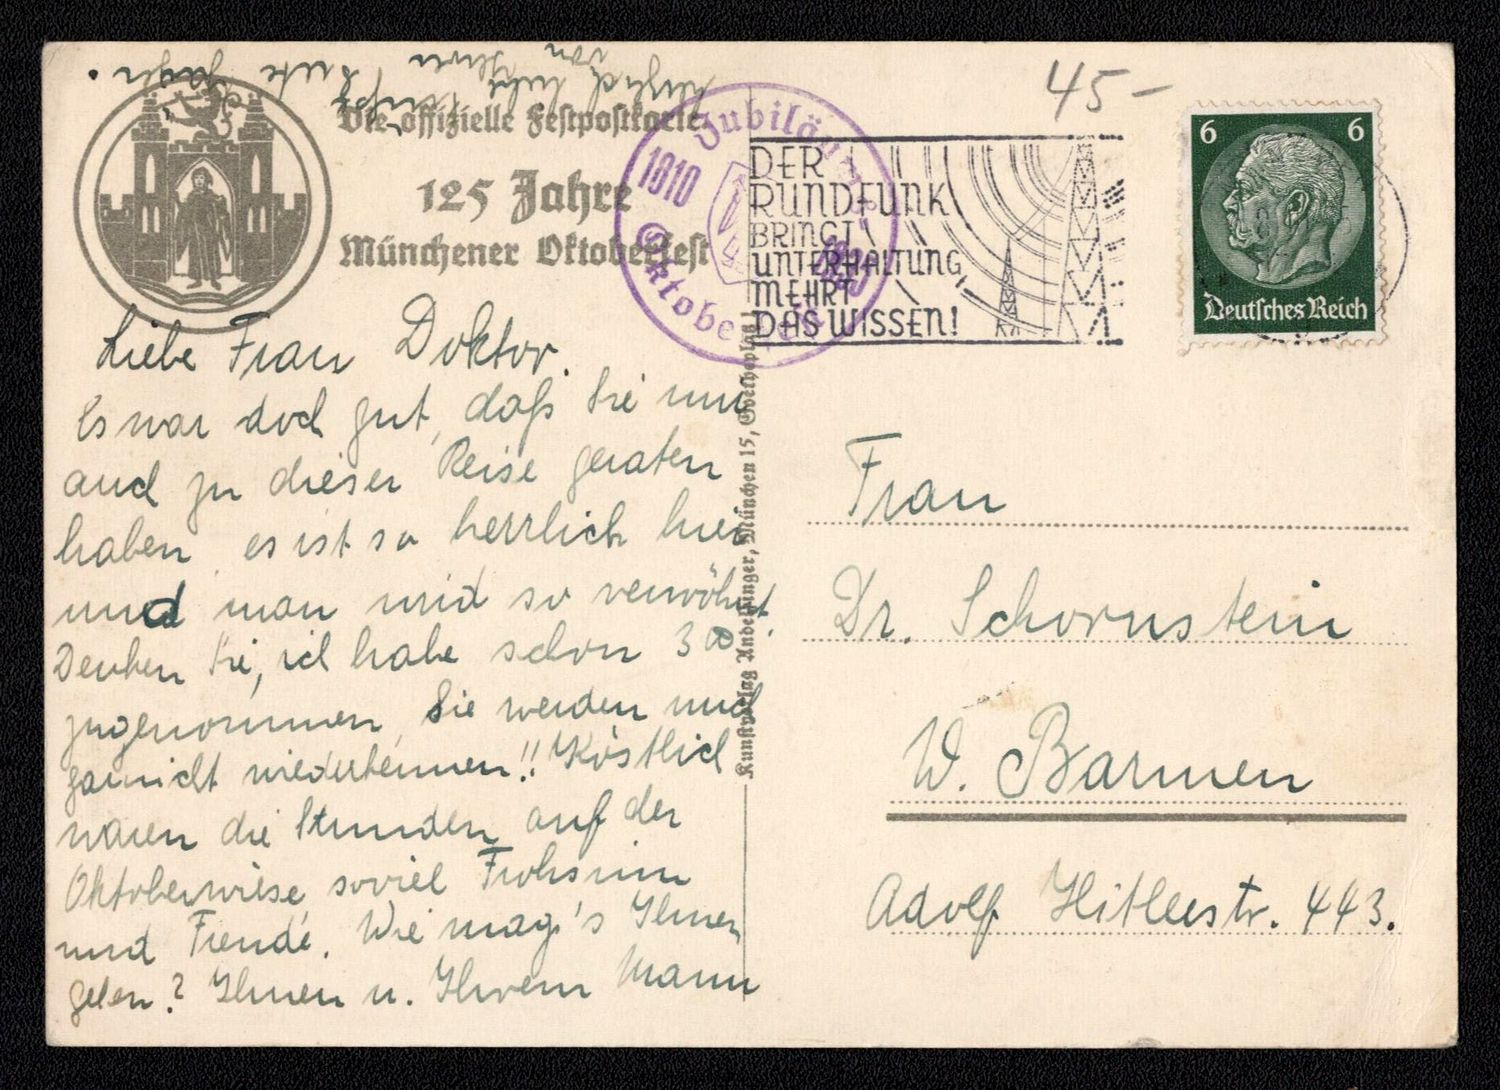 Die offizielle Festpostkarte
125 Jahre
Münchener Oktoberfest
Jubiläums
1810
1935
Oktoberfest
DER
RUNDFUNK
BRINGT
UNTERHALTUNG
MEHRT
DAS WISSEN!
45-
6 6
Deutsches Reich
Liebe Frau Doktor.
Es war doch gut, daß Sie mir
auch zu dieser Reise geraten
haben, es ist so herrlich hier
und man wird so verwöhnt.
Denken Sie, ich habe schon 3 ℔
zugenommen, Sie werden mich
garnicht wiederkennen!! Köstlich
waren die Stunden auf der
Oktoberwiese, soviel Frohsinn
und Freude. Wie mag's Ihnen
gehen? Ihnen u. Ihrem Mann
herzlich
von Ihrer
Kunstverlag Andelfinger, München 15, Goetheplatz 1
Frau
Dr. Schornstein
W. Barmen
Adolf Hitlerstr. 443.